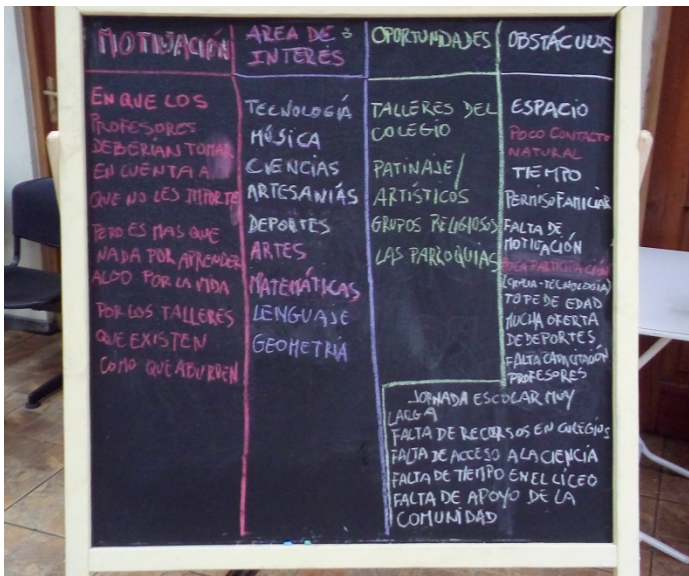 MOTIVACIÓN
EN QUE LOS
PROFESORES
DEBERIAN TOMAR
EN CUENTA A
QUE NO LES IMPORTE
PERO ES MAS QUE
NADA POR APRENDER
ALGO POR LA VIDA
POR LOS TALLERES
QUE EXISTEN
COMO QUE ABURREN
AREA DE
INTERÉS
TECNOLOGÍA
MÚSICA
CIENCIAS
ARTESANIÁS
DEPORTES
ARTES
MATEMÁTICAS
LENGUAJE
GEOMETRIA
OPORTUNIDADES
TALLERES DEL
COLEGIO
PATINAJE/
ARTÍSTICOS
GRUPOS RELIGIOSOS
LAS PARROQUIAS
OBSTÁCULOS
ESPACIO
POCO CONTACTO
NATURAL
TIEMPO
PERMISO FAMILIAR
FALTA DE
MOTIVACIÓN
POCA PARTICIPACIÓN
(CIENCIA-TECNOLOGIA)
TOPE DE EDAD
MUCHA OFERTA
DE DEPORTES
FALTA CAPACITACIÓN
PROFESORES
JORNADA ESCOLAR MUY
LARGA
FALTA DE RECURSOS EN COLEGIOS
FALTA DE ACCESO A LA CIENCIA
FALTA DE TIEMPO EN EL LICEO
FALTA DE APOYO DE LA
COMUNIDAD